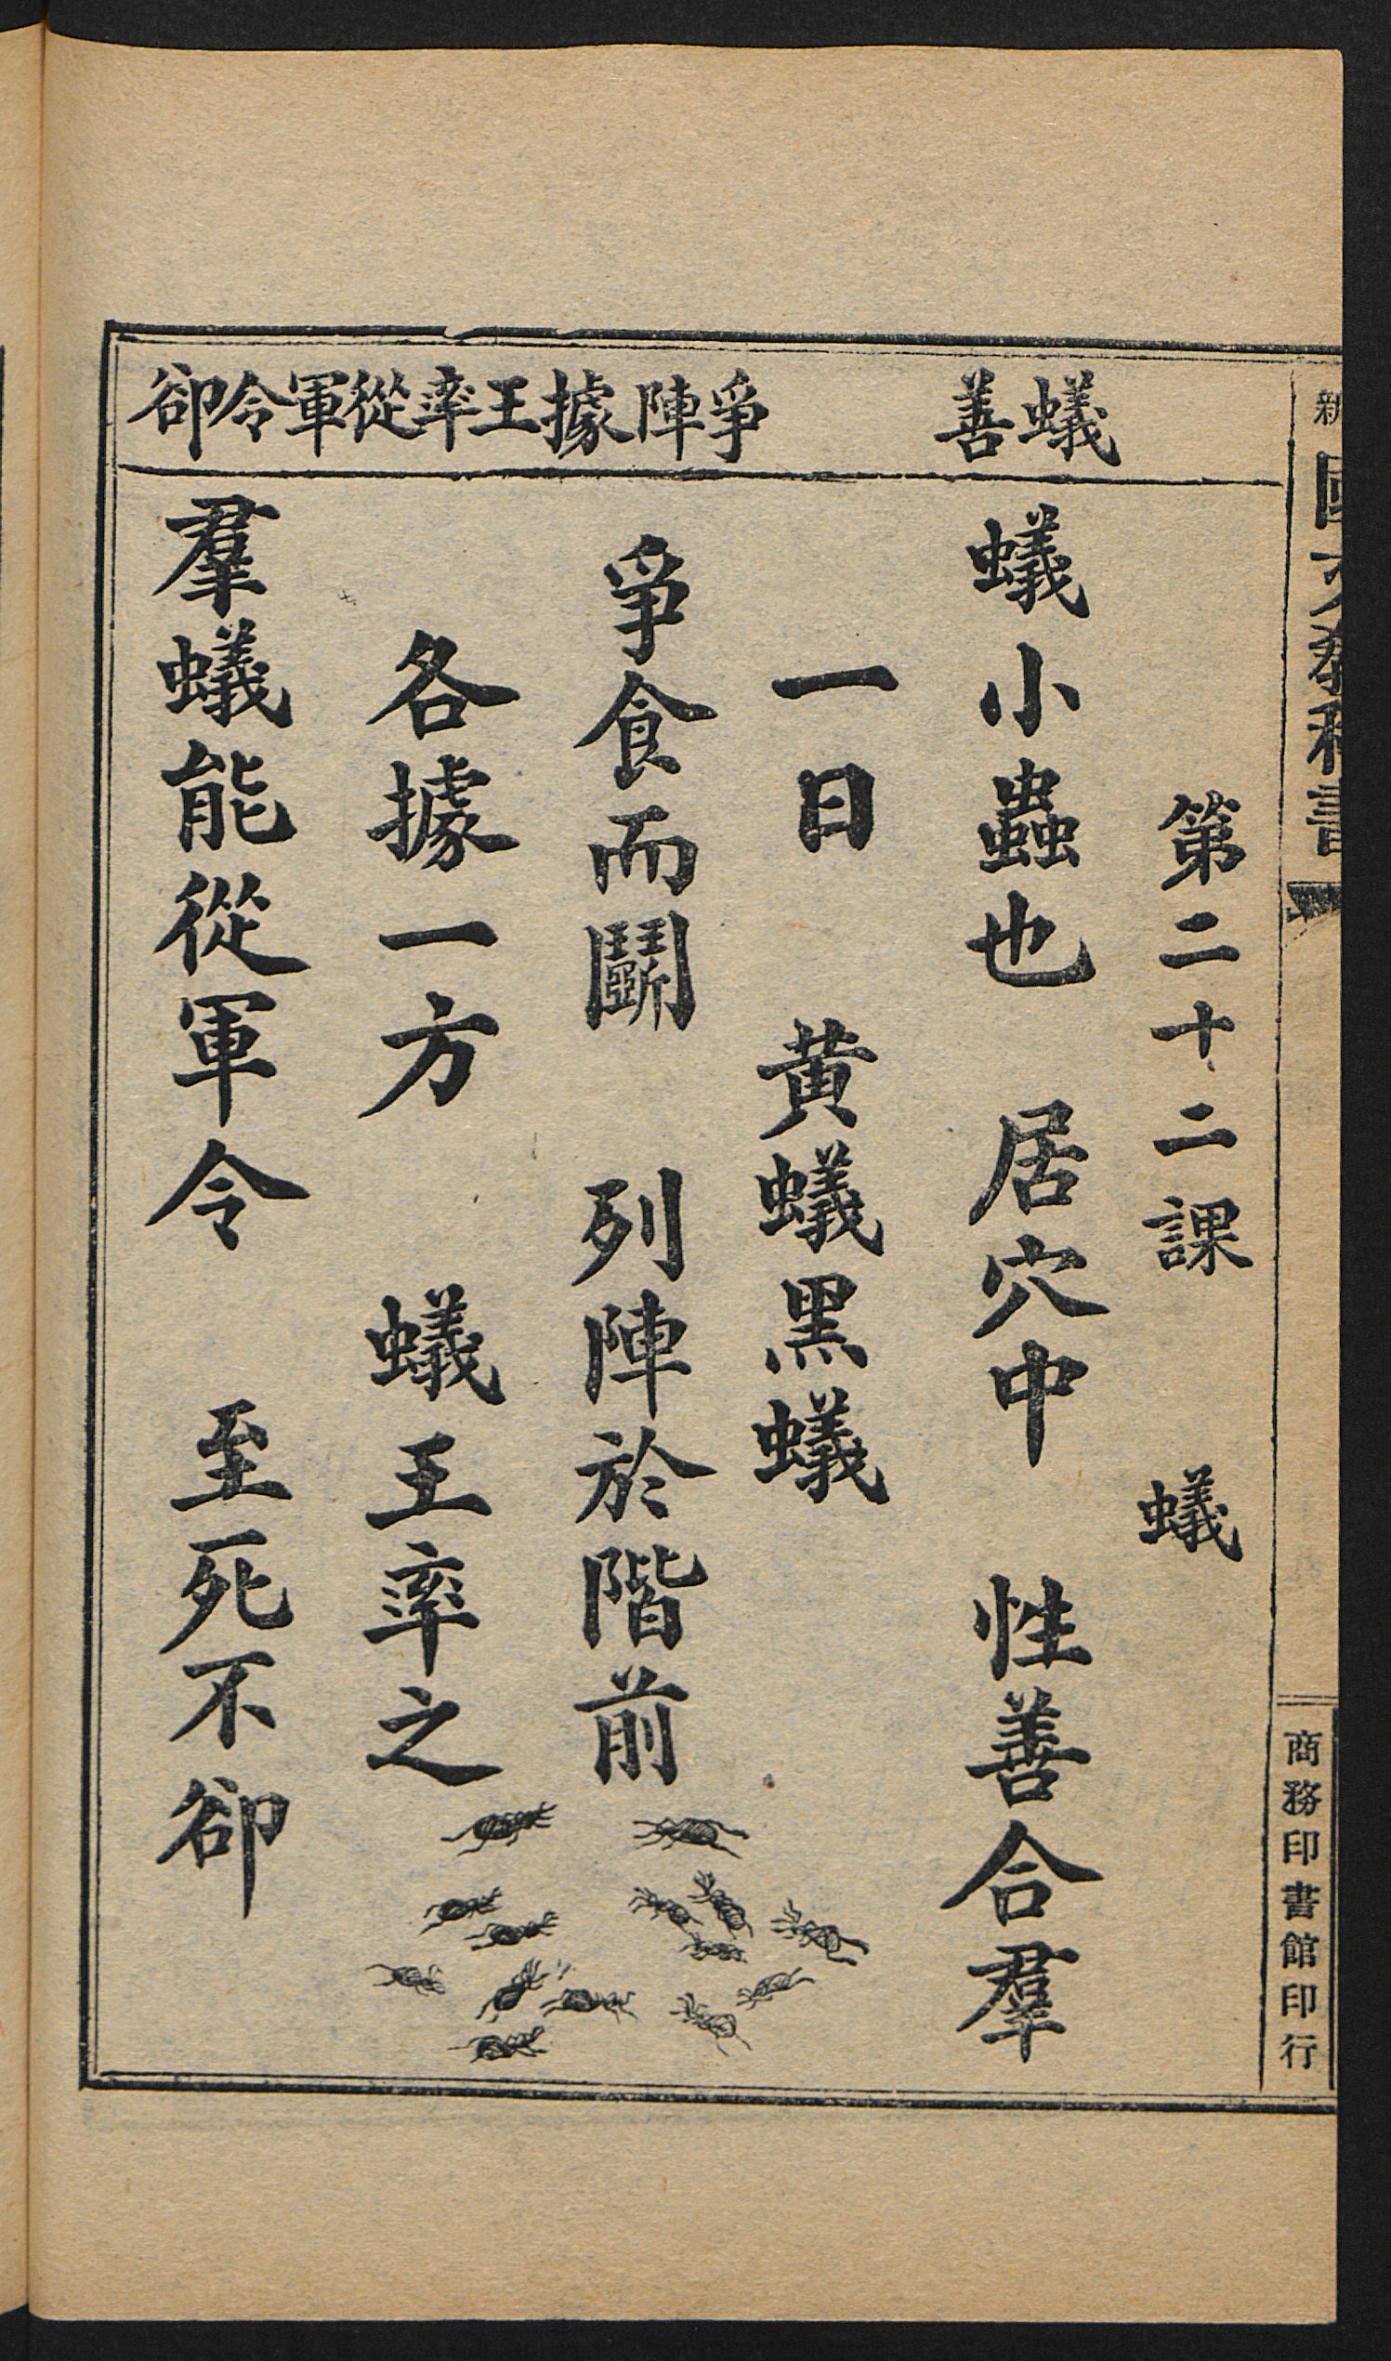 新 國文教科書
商務印書館印行
蟻善 爭陣據王率從軍令卻
第二十二課 蟻
蟻小蟲也 居穴中 性善合羣
一日 黃蟻黑蟻
爭食而鬬 列陣於階前
各據一方 蟻王率之
羣蟻能從軍令 至死不卻